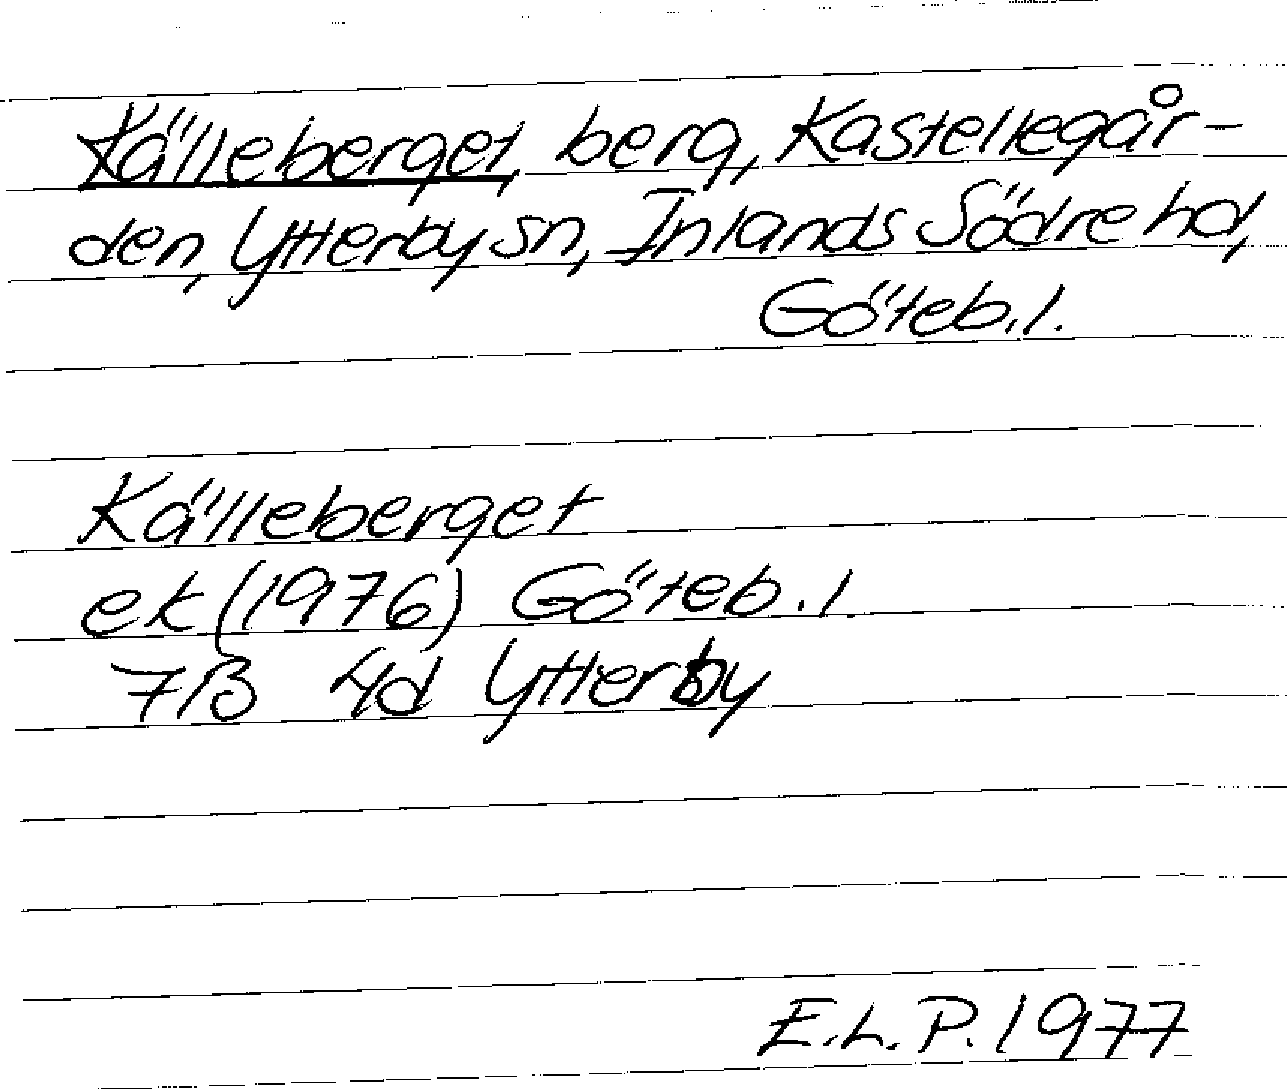 Källeberget, berg, Kastellegår-
den, Ytterby sn, Inlands Södre hd,
Göteb. l.
Källeberget
ek (1976) Göteb. l.
7B 4d Ytterby
E.L.P. 1977